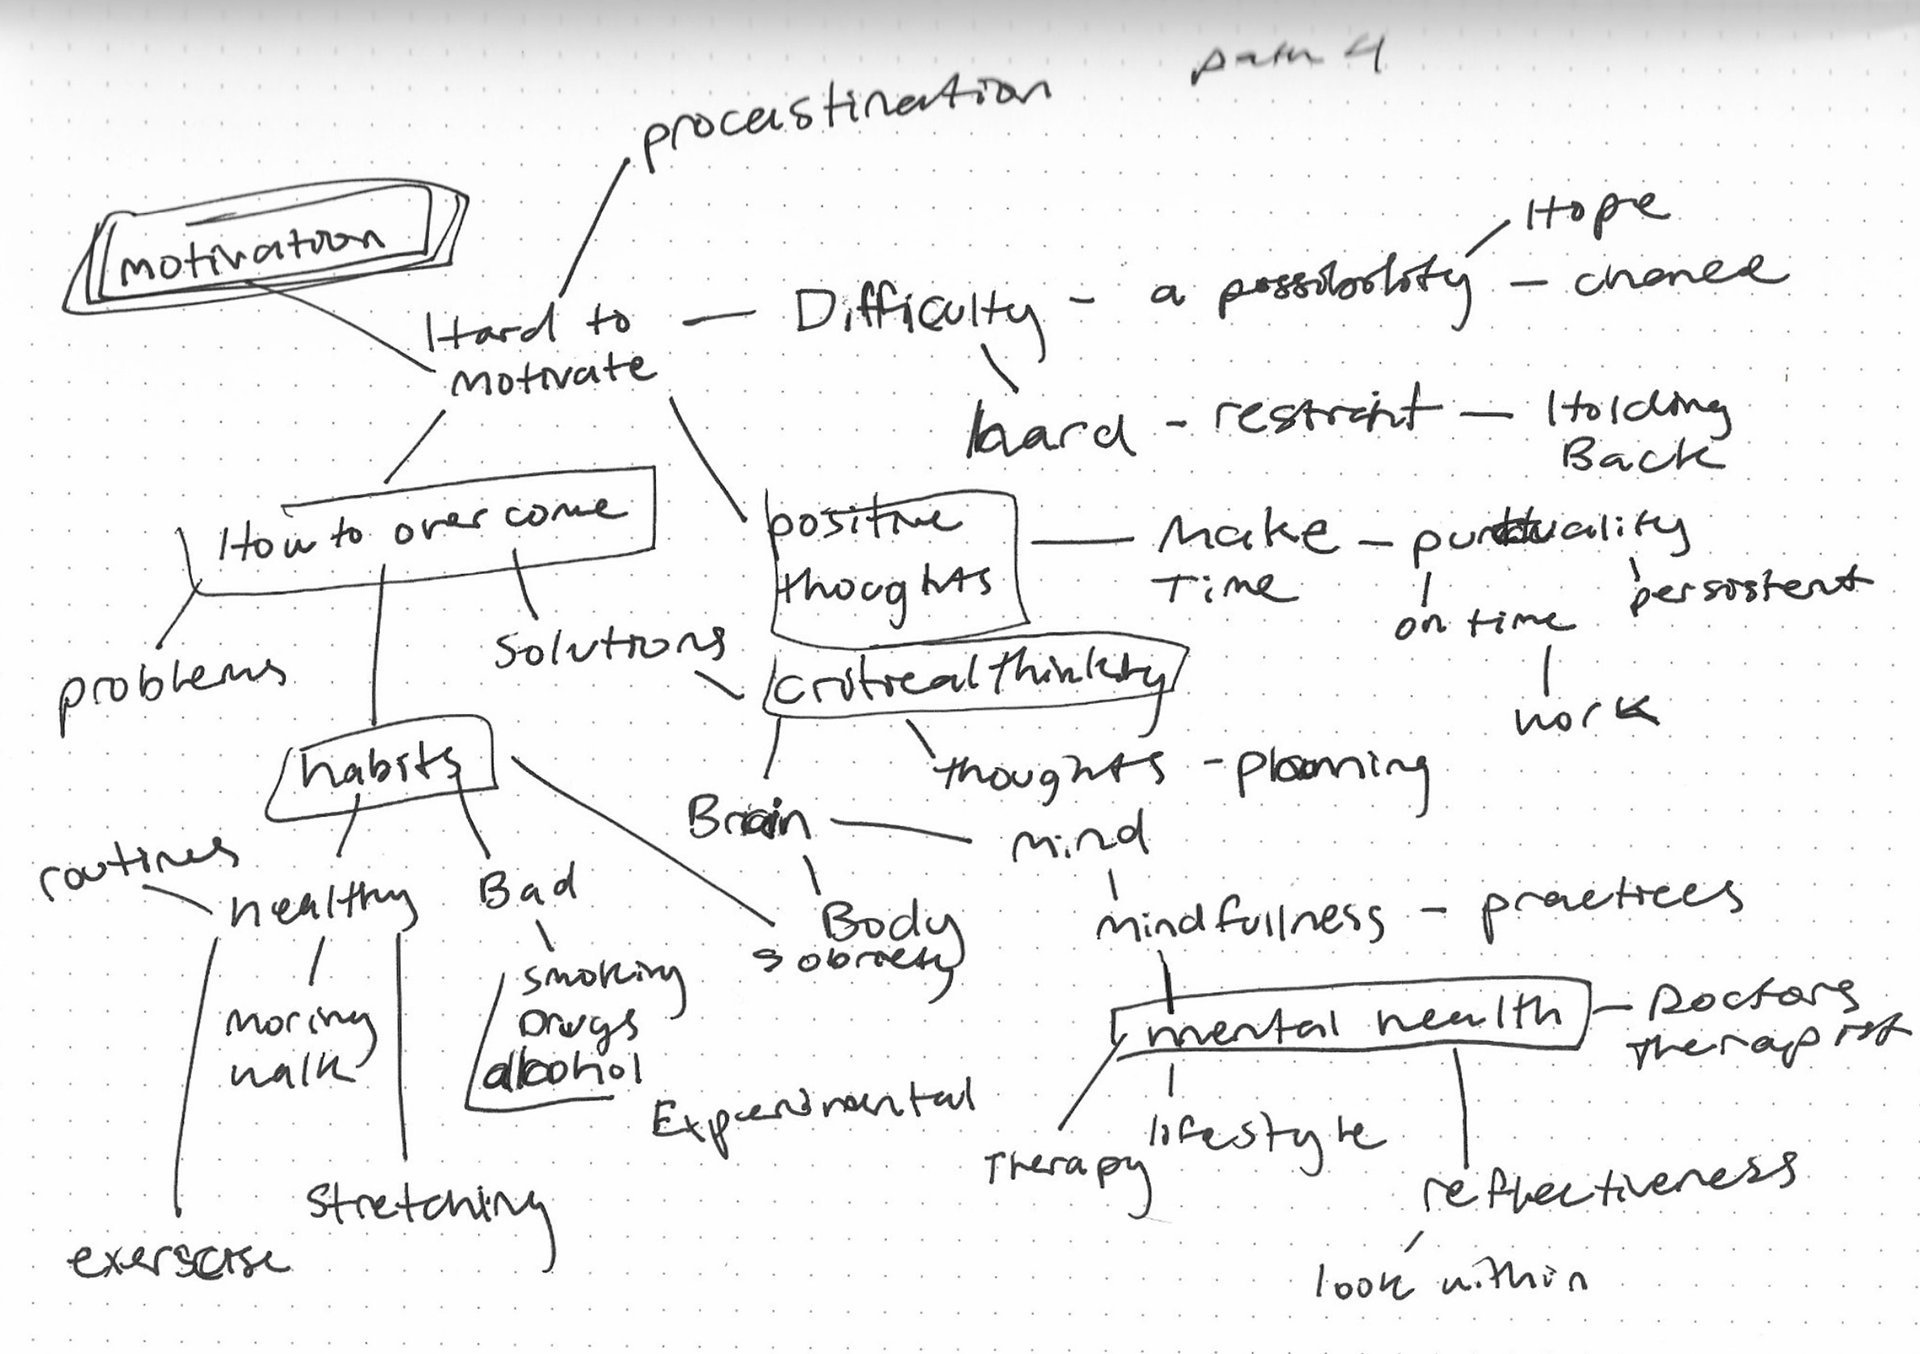 path 4
procastination
motivation
Hope
Difficulty - a possibility - chance
Hard to
motivate
hard - restraint - Holding
Back
How to over come
positive
thoughts
Make
Time
- punctuality
persistent
on time
work
Solutions
problems
critical thinking
habits
thoughts - planning
Brain
mind
routines
healthy
Bad
Body
sobriety
mindfullness - practices
smoking
Drugs
alcohol
moring
walk
mental health
- Doctors
Therapist
Experimental
lifestyle
Therapy
reflectiveness
Stretching
exerscise
look within